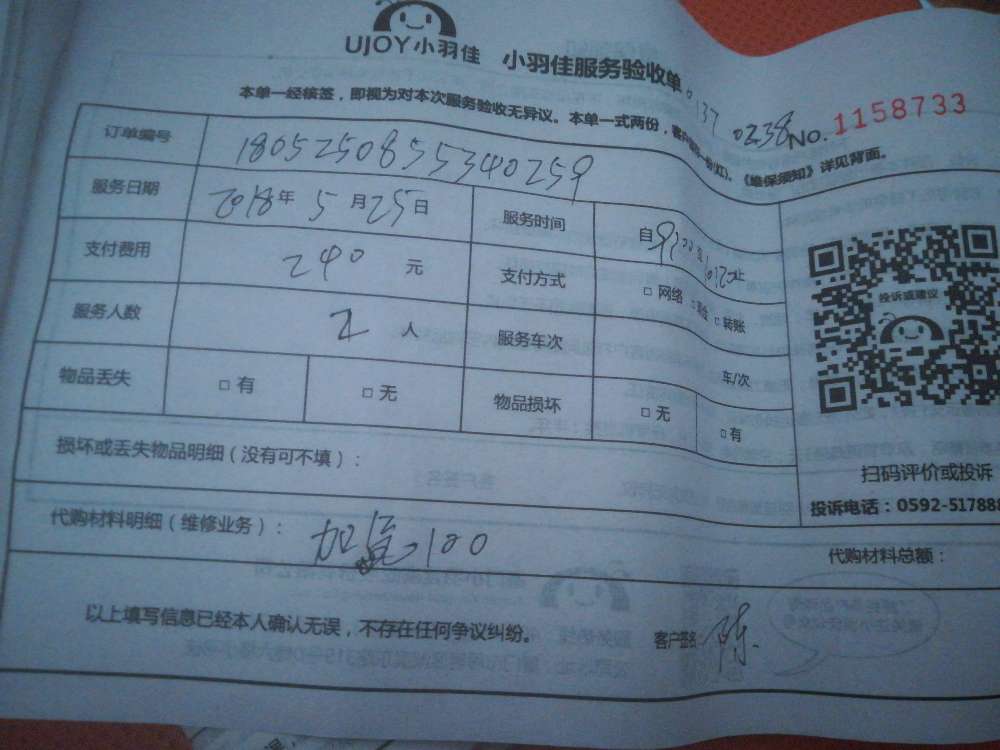 UJOY小羽佳 小羽佳服务验收单
本单一经核签，即视为对本次服务验收无异议。本单一式两份，客户
《维保须知》详见背面。
137 0238 NO. 1158733
订单编号 1805250855340259
服务日期 2018年5月25日 服务时间 自
支付费用 240 元 支付方式 □ 网络 □ 现金 □ 转账
服务人数 2 人 服务车次 车/次
物品丢失 □ 有 □ 无 物品损坏 □ 无 □ 有
投诉或建议
损坏或丢失物品明细（没有可不填）：
扫码评价或投诉
投诉电话：0592-517888
代购材料明细（维修业务）： 加 100
代购材料总额：
以上填写信息已经本人确认无误，不存在任何争议纠纷。
客户签名 陈